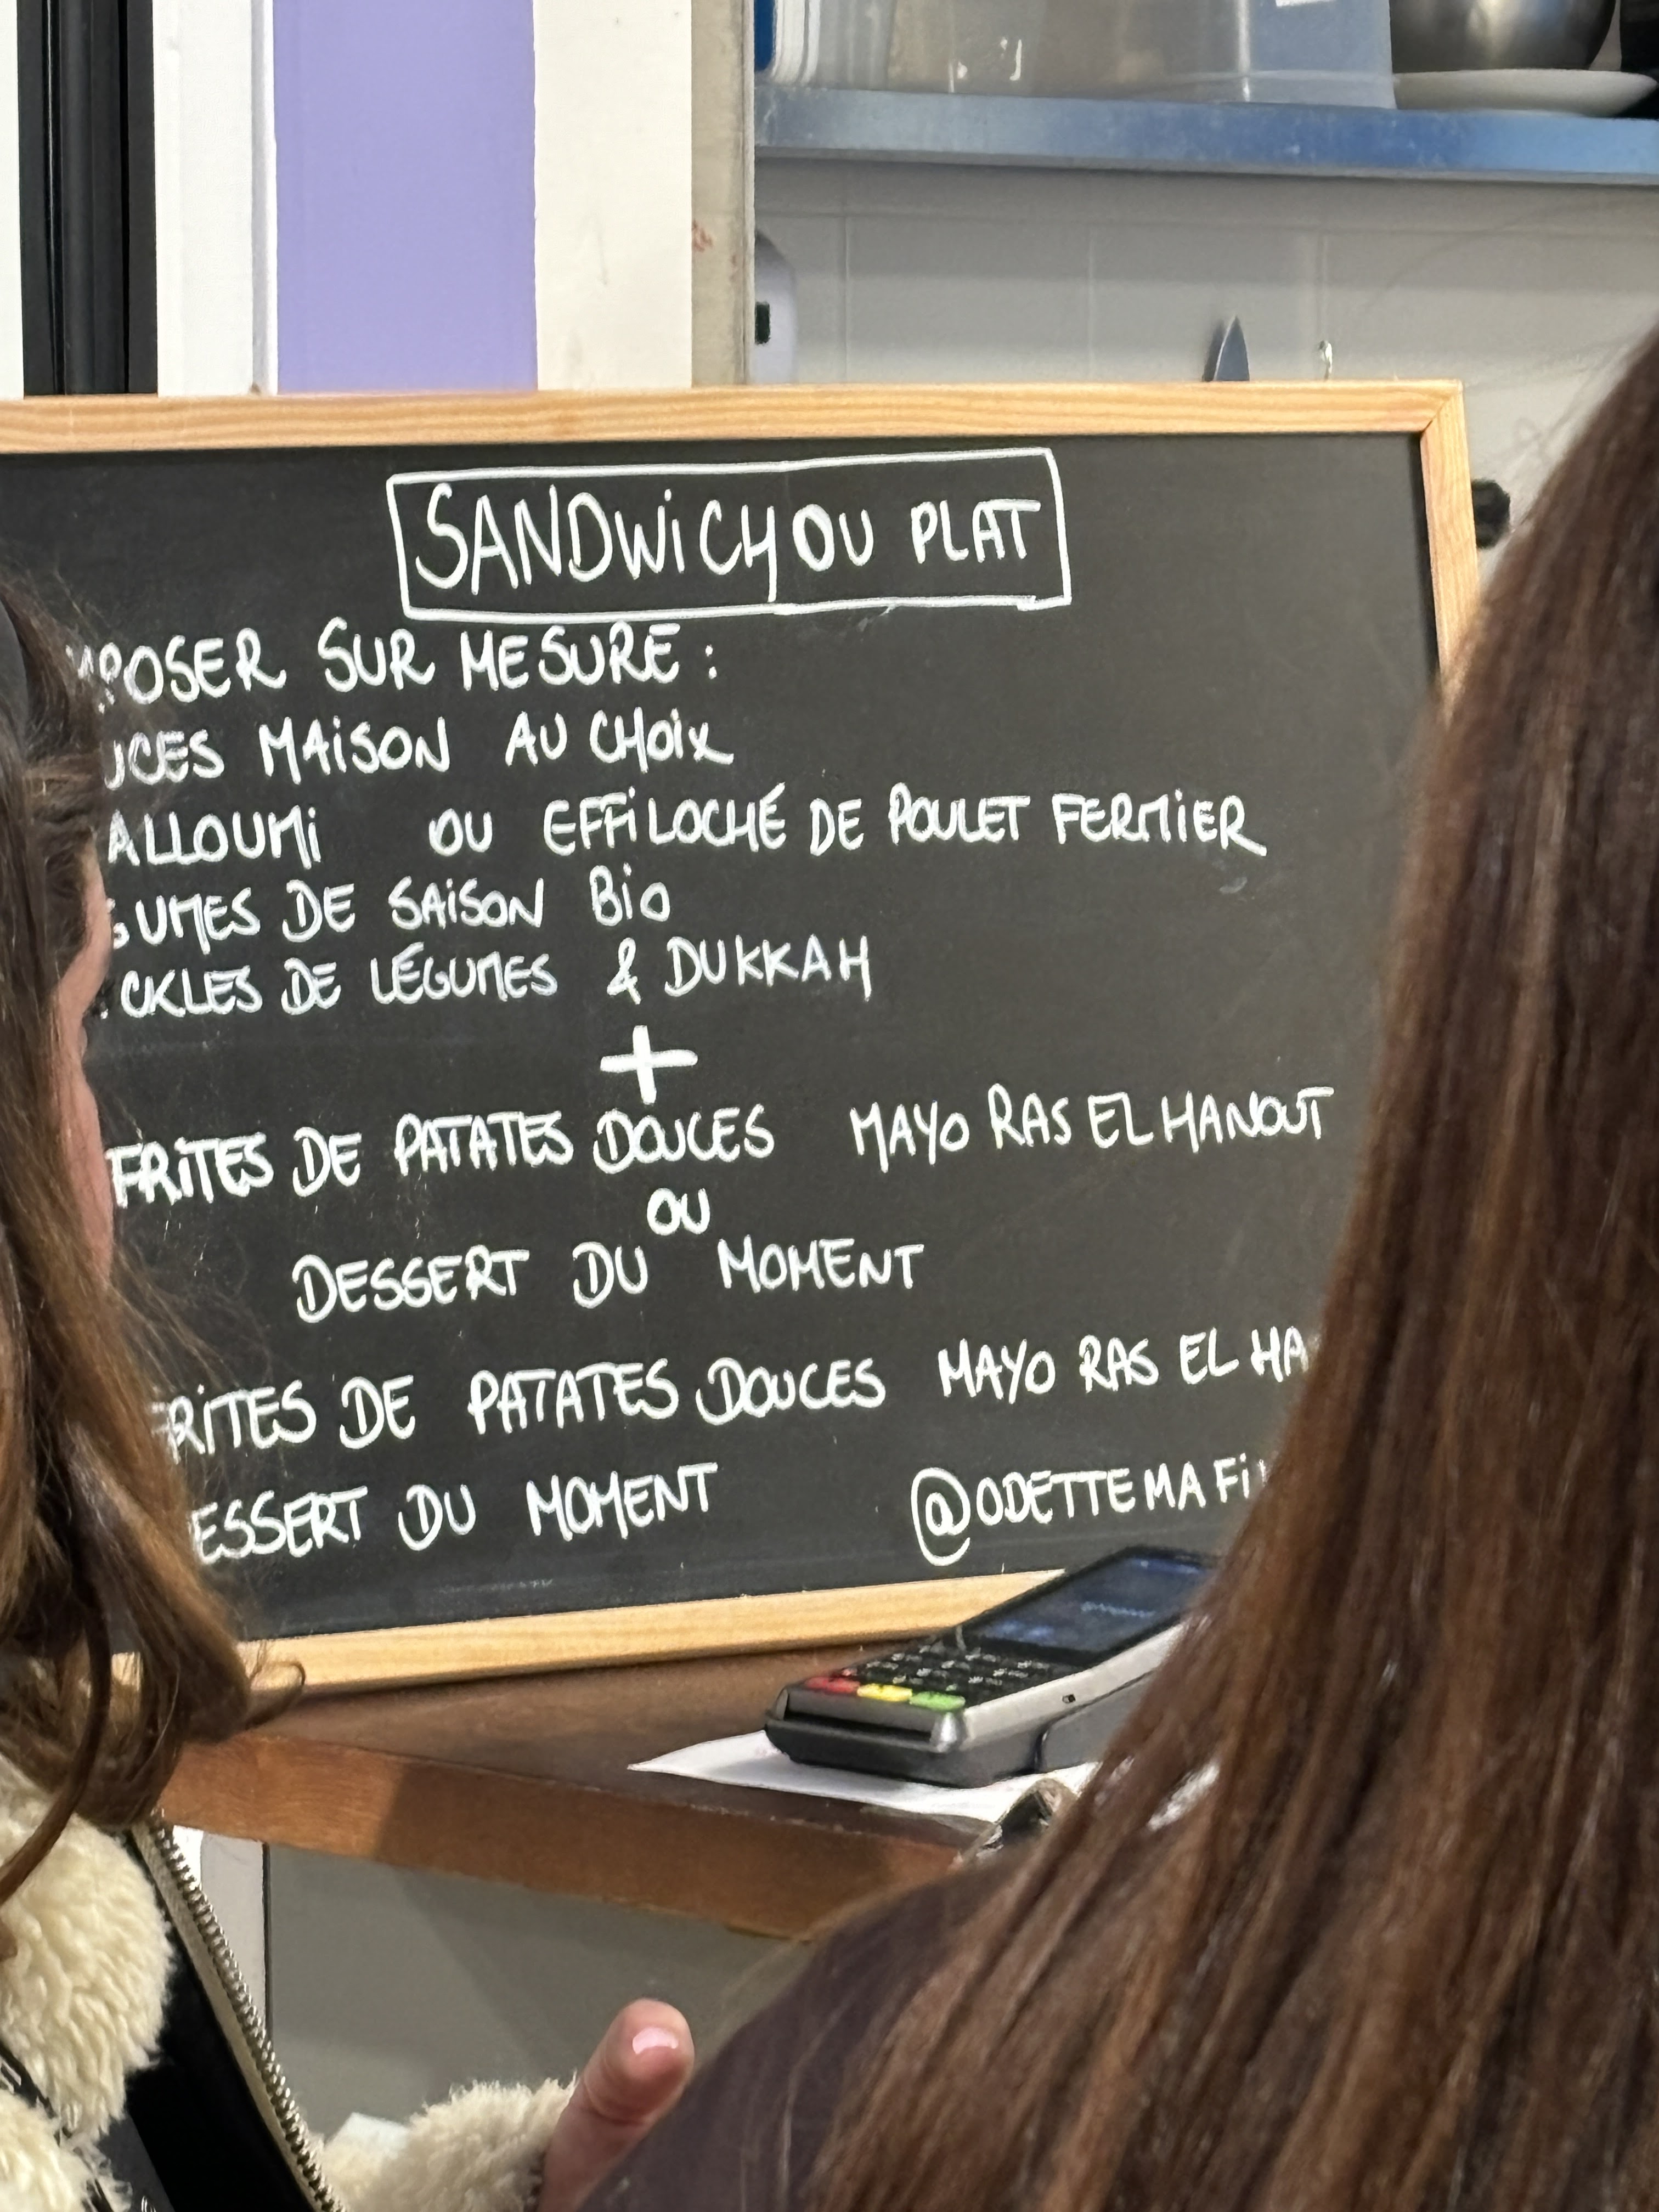 SANDWICH OU PLAT
POSER SUR MESURE :
UCES MAISON AU CHOIX
ALLOUMI OU EFFILOCHÉ DE POULET FERMIER
GUMES DE SAISON BIO
CKLES DE LÉGUMES & DUKKAH
+
FRITES DE PATATES DOUCES MAYO RAS EL HANOUT
OU
DESSERT DU MOMENT
FRITES DE PATATES DOUCES MAYO RAS EL HA
ESSERT DU MOMENT @ODETTEMAFI